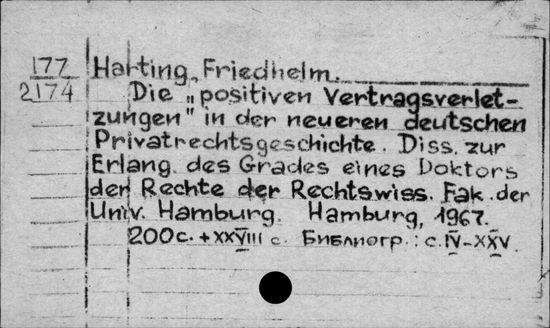 177
2174
Harting, Friedhelm.
Die „positiven Vertragsverlet-
zungen" in der neueren deutschen
Privatrechtsgeschichte. Diss. zur
Erlang. des Grades eines Doktors
der Rechte der Rechtswiss. Fak. der
Univ. Hamburg. Hamburg, 1967.
200с. + XXVIII с. Библиогр.: с. IV-XXV.